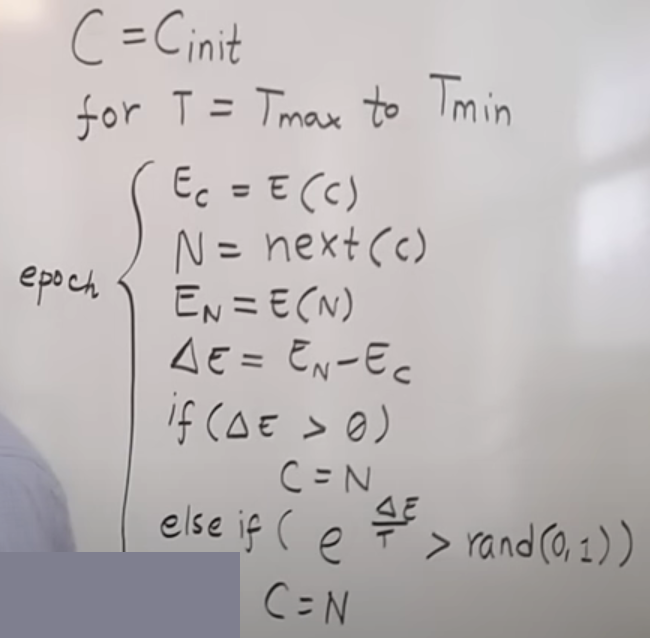 C = Cinit
for T = Tmax to Tmin
epoch
Ec = E(C)
N = next(C)
EN = E(N)
ΔE = EN - Ec
if (ΔE > 0)
C = N
else if ( e^(ΔE/T) > rand(0,1))
C = N